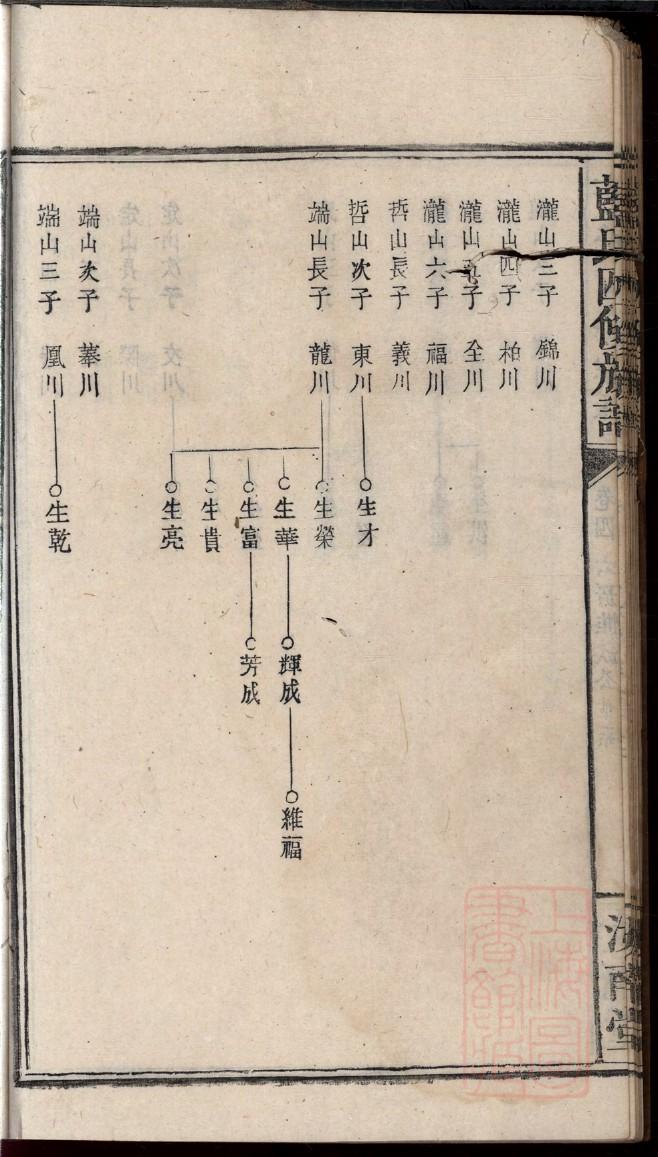 瀧山三子 錦川
瀧山四子 柏川
瀧山五子 全川
瀧山六子 福川
哲山長子 義川
哲山次子 東川 生才
端山長子 龍川 生榮
生華 輝成 維福
生富 芳成
生貴
生亮
端山次子 華川
端山三子 鳳川 生乾
藍氏四修族譜
卷四
上海圖書館藏